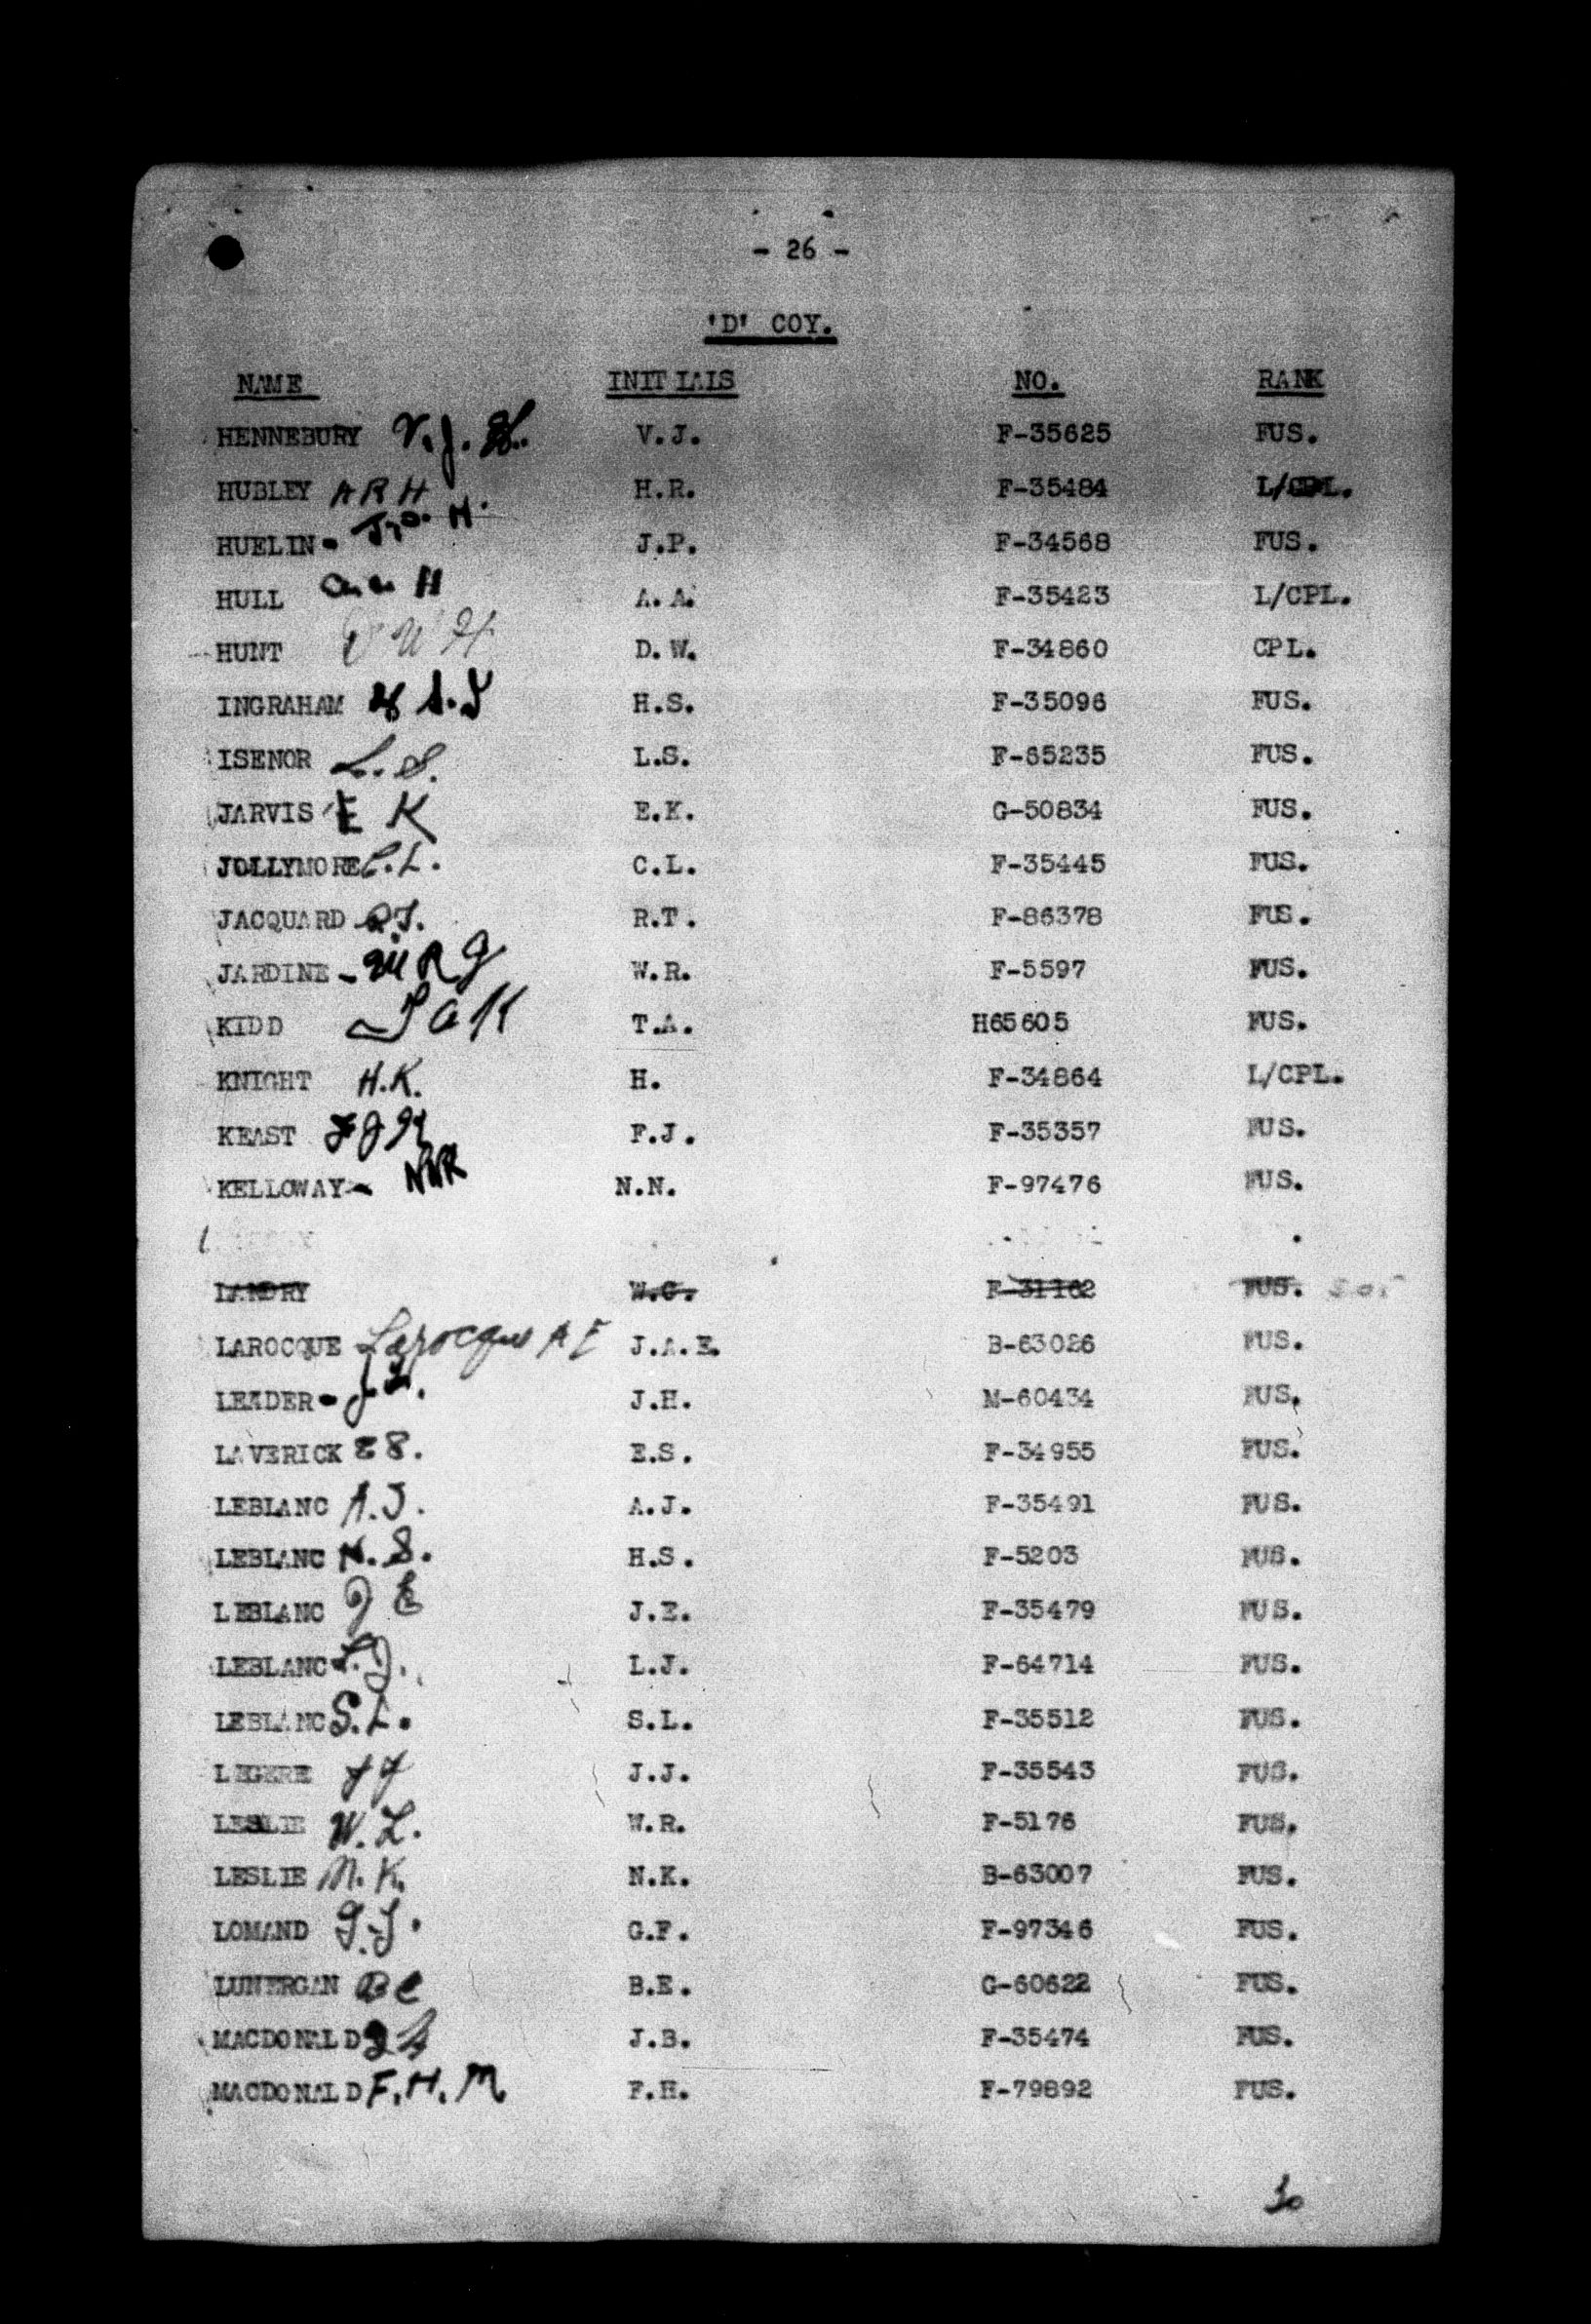 - 26 -
'D' COY.
NAME INITIALS NO. RANK
HENNEBURY V.J.H. V.J. F-35625 FUS.
HUBLEY HRH H.R. F-35484 L/CPL.
HUELIN - Jno. H. J.P. F-34568 FUS.
HULL a. a. H A.A. F-35423 L/CPL.
HUNT D W H D.W. F-34860 CPL.
INGRAHAM H S.I H.S. F-35096 FUS.
ISENOR L.S. L.S. F-65235 FUS.
JARVIS E K E.K. G-50834 FUS.
JOLLYMORE C.L. C.L. F-35445 FUS.
JACQUARD R.T. R.T. F-86378 FUS.
JARDINE - W R J W.R. F-5597 FUS.
KIDD T a K T.A. H65605 FUS.
KNIGHT H.K. H. F-34864 L/CPL.
KEAST F J K F.J. F-35357 FUS.
KELLOWAY - NNK N.N. F-97476 FUS.
LANDRY W.C. F-31162 FUS.
LAROCQUE Larocque A E J.A.E. B-63026 FUS.
LEADER - J.H. J.H. M-60434 FUS.
LAVERICK E S. E.S. F-34955 FUS.
LEBLANC A.J. A.J. F-35491 FUS.
LEBLANC H.S. H.S. F-5203 FUS.
LEBLANC J E J.E. F-35479 FUS.
LEBLANC L.J. L.J. F-64714 FUS.
LEBLANC S.L. S.L. F-35512 FUS.
LEGERE J J J.J. F-35543 FUS.
LESLIE W.L. W.R. F-5176 FUS.
LESLIE N.K. N.K. B-63007 FUS.
LOMAND G.F. G.F. F-97346 FUS.
LUNERGAN B e B.E. G-60622 FUS.
MACDONALD J B J.B. F-35474 FUS.
MACDONALD F.H.M F.H. F-79892 FUS.
30